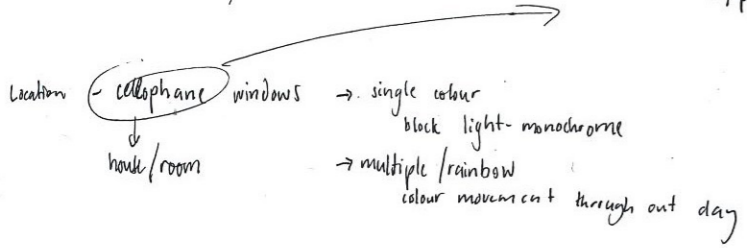 Location - cellophane windows → single colour
block light - monochrome
house/room → multiple/rainbow
colour movement through out day